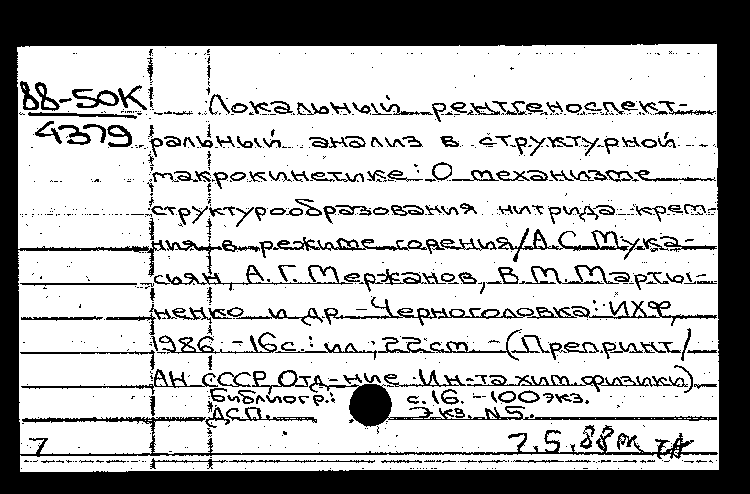 88-50К
4379
Локальный рентгеноспект-
ральный анализ в структурной
макрокинетике: О механизме
структурообразования нитрида крем-
ния в режиме горения/А.С. Мука-
сьян, А.Г. Мержанов, В.М. Марты-
ненко и др. -Черноголовка: ИХФ,
1986. -16с.: ил.; 22 см. -(Препринт/
АН СССР, Отд-ние Ин-та хим. физики).
Библиогр.: с.16. -100 экз.
ДСП. Экз. N5.
7 7.5.88